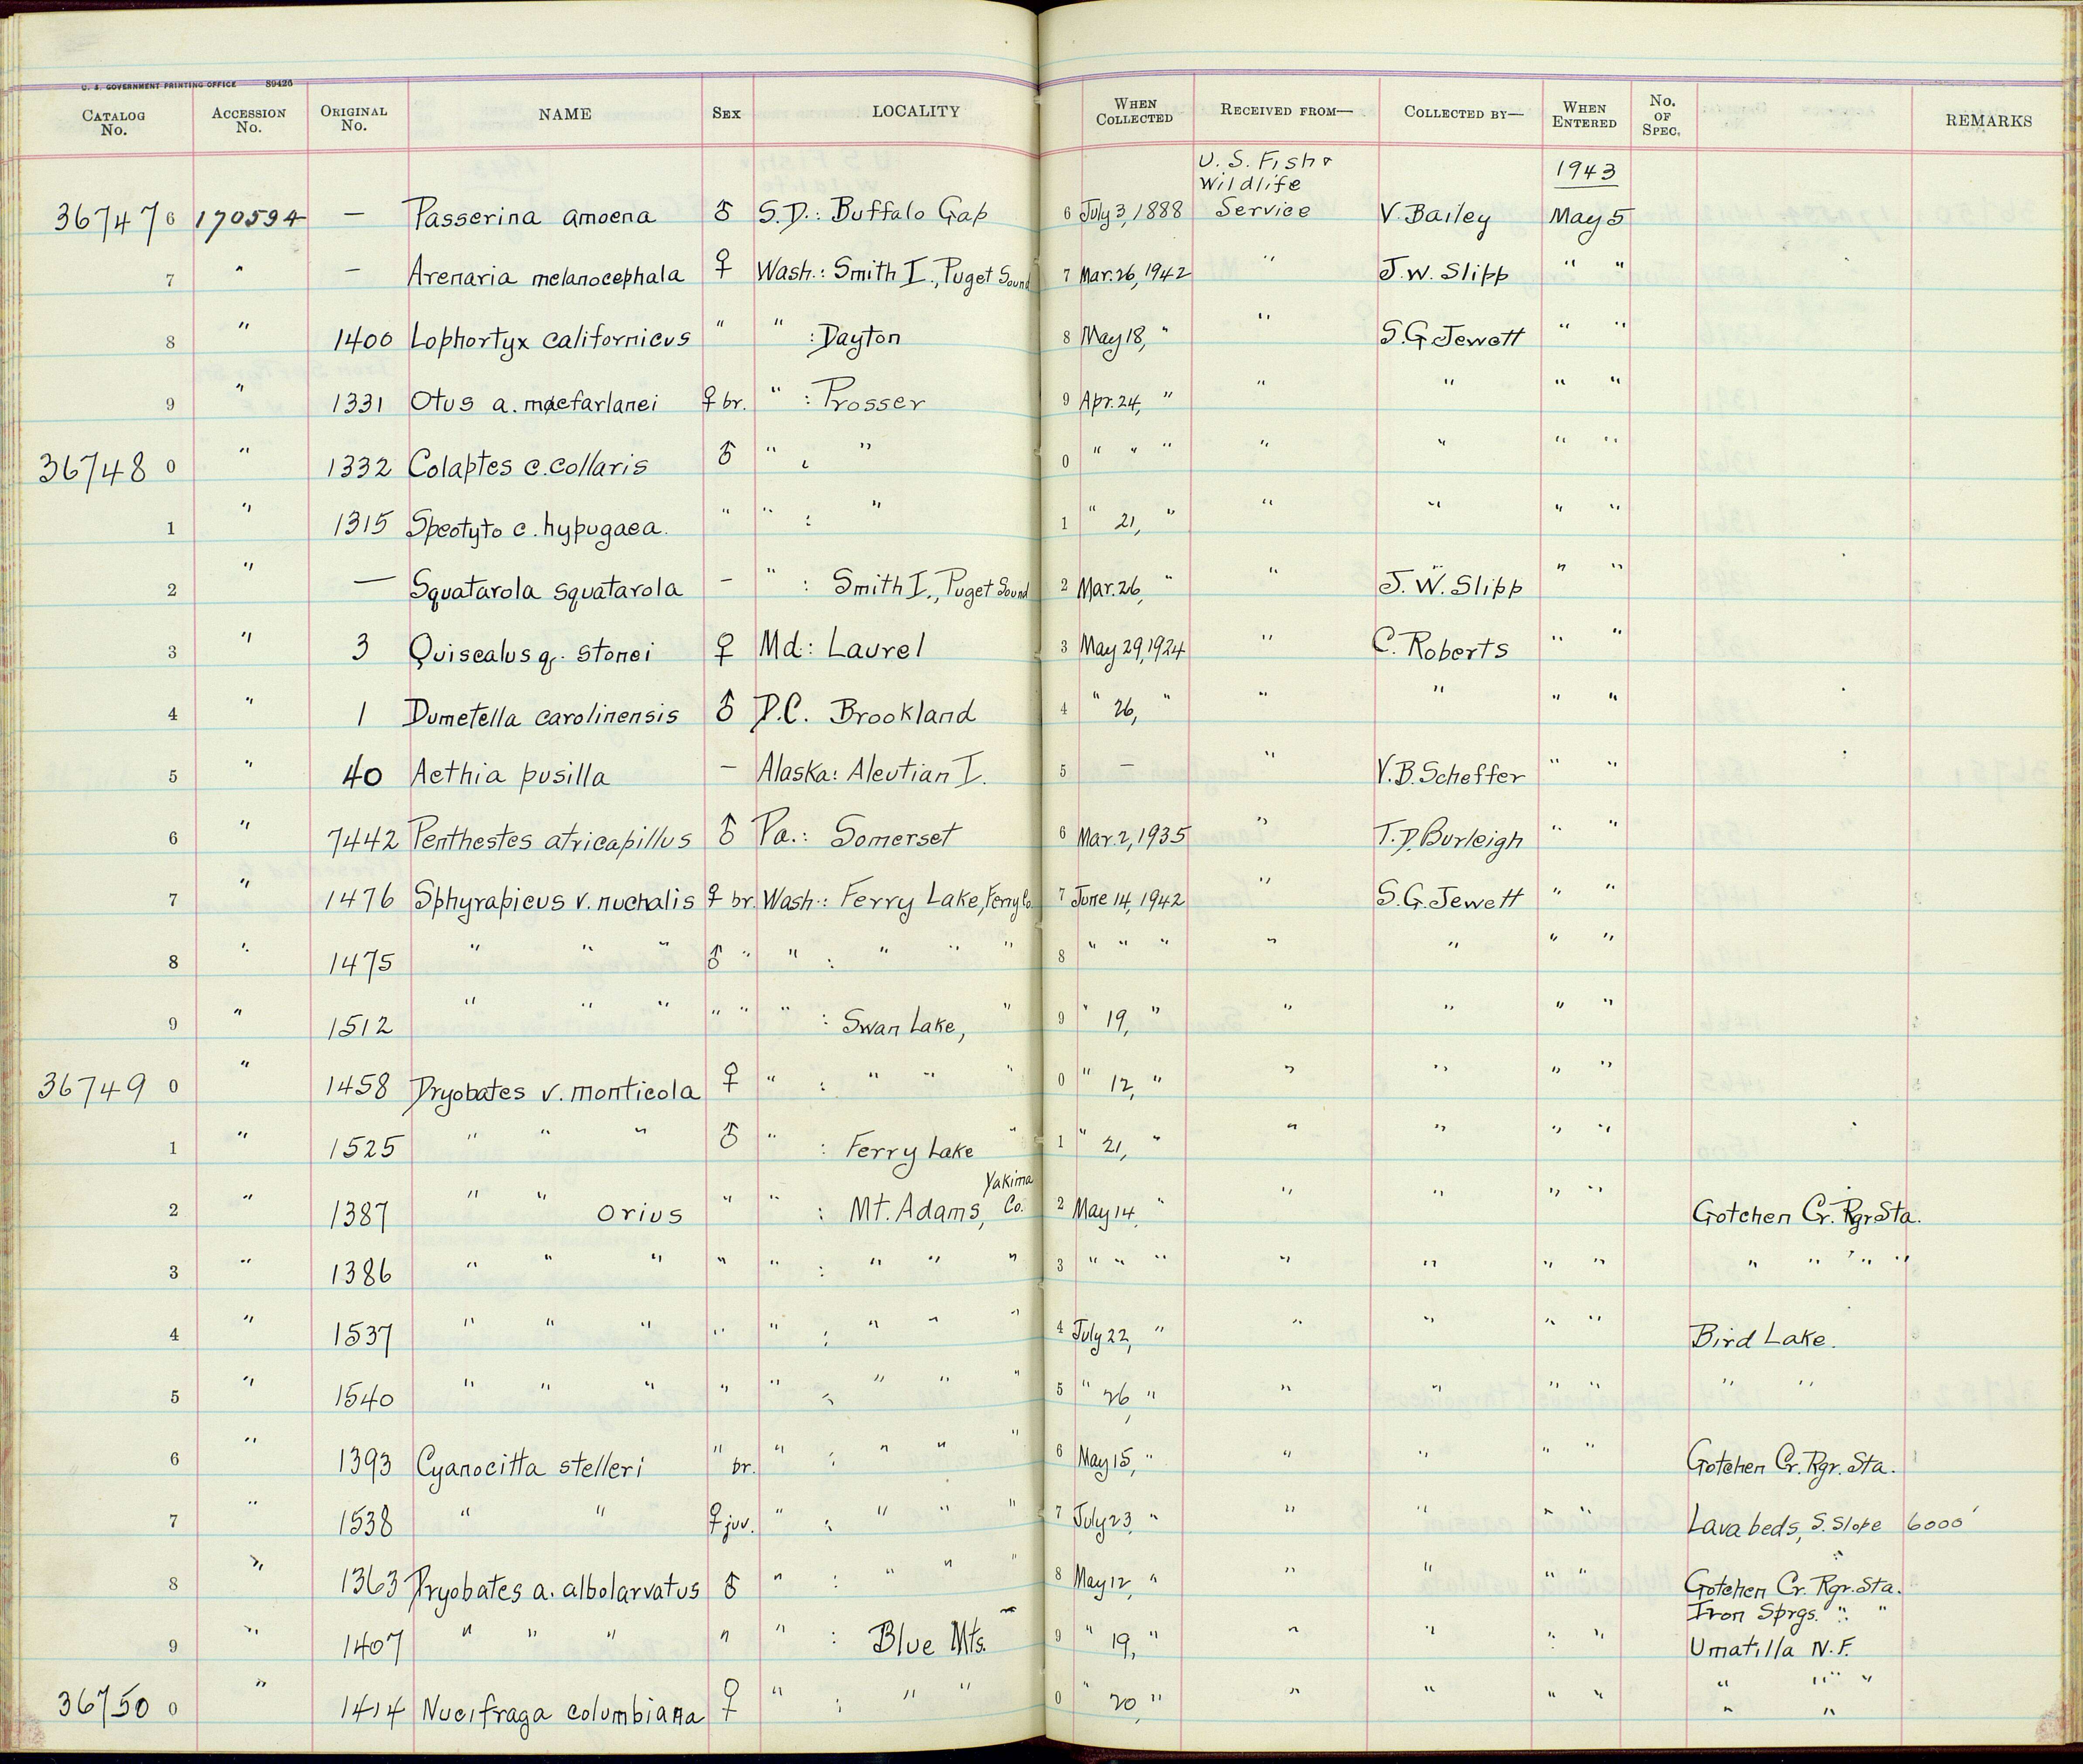 U. S. GOVERNMENT PRINTING OFFICE 89426
CATALOG No. ACCESSION No. ORIGINAL No. NAME SEX LOCALITY WHEN COLLECTED RECEIVED FROM— COLLECTED BY— WHEN ENTERED No. OF SPEC. REMARKS
U. S. Fish & Wildlife 1943
36747 6 170594 — Passerina amoena ♂ S.D.: Buffalo Gap 6 July 3, 1888 Service V. Bailey May 5
7 " — Arenaria melanocephala ♀ Wash.: Smith I., Puget Sound 7 Mar. 26, 1942 " J. W. Slipp " "
8 " 1400 Lophortyx californicus " " : Dayton 8 May 18, " " S. G. Jewett " "
9 " 1331 Otus a. macfarlanei ♀ br. " : Prosser 9 Apr. 24, " " " " "
36748 0 " 1332 Colaptes c. collaris ♂ " : " 0 " " " " " " "
1 " 1315 Speotyto c. hypugaea. " " : " 1 " 21, " " " " "
2 " — Squatarola squatarola — " : Smith I., Puget Sound 2 Mar. 26, " " J. W. Slipp " "
3 " 3 Quiscalus q. stonei ♀ Md: Laurel 3 May 29, 1924 " C. Roberts " "
4 " 1 Dumetella carolinensis ♂ D.C. Brookland 4 " 26, " " " " "
5 " 40 Aethia pusilla — Alaska: Aleutian I. 5 — " V. B. Scheffer " "
6 " 7442 Penthestes atricapillus ♂ Pa.: Somerset 6 Mar. 2, 1935 " T. D. Burleigh " "
7 " 1476 Sphyrapicus v. nuchalis ♀ br. Wash.: Ferry Lake, Ferry Co. 7 June 14, 1942 " S. G. Jewett " "
8 " 1475 " " " ♂ " " : " " " 8 " " " " " " "
9 " 1512 " " " " " " : Swan Lake, " 9 " 19, " " " " "
36749 0 " 1458 Dryobates v. monticola ♀ " : " " " 0 " 12, " " " " "
1 " 1525 " " " ♂ " : Ferry Lake " 1 " 21, " " " " "
2 " 1387 " " orius " " : Mt. Adams, Yakima Co. 2 May 14, " " " " " Gotchen Cr. Rgr Sta.
3 " 1386 " " " " " : " " " 3 " " " " " " " " " " "
4 " 1537 " " " " " : " " " 4 July 22, " " " " " Bird Lake.
5 " 1540 " " " " " : " " " 5 " 26, " " " " " " "
6 " 1393 Cyanocitta stelleri " br. " : " " " 6 May 15, " " " " " Gotchen Cr. Rgr. Sta.
7 " 1538 " " ♀ juv. " : " " " 7 July 23, " " " " " Lava beds, S. Slope 6000'
8 " 1363 Dryobates a. albolarvatus ♂ " : " " " 8 May 12, " " " " " Gotchen Cr. Rgr. Sta.
Iron Sprgs. " "
9 " 1407 " " " " " : Blue Mts. — 9 " 19, " " " " " Umatilla N. F.
" " " "
36750 0 " 1414 Nucifraga columbiana ♀ " : " " 0 " 20, " " " " " " "